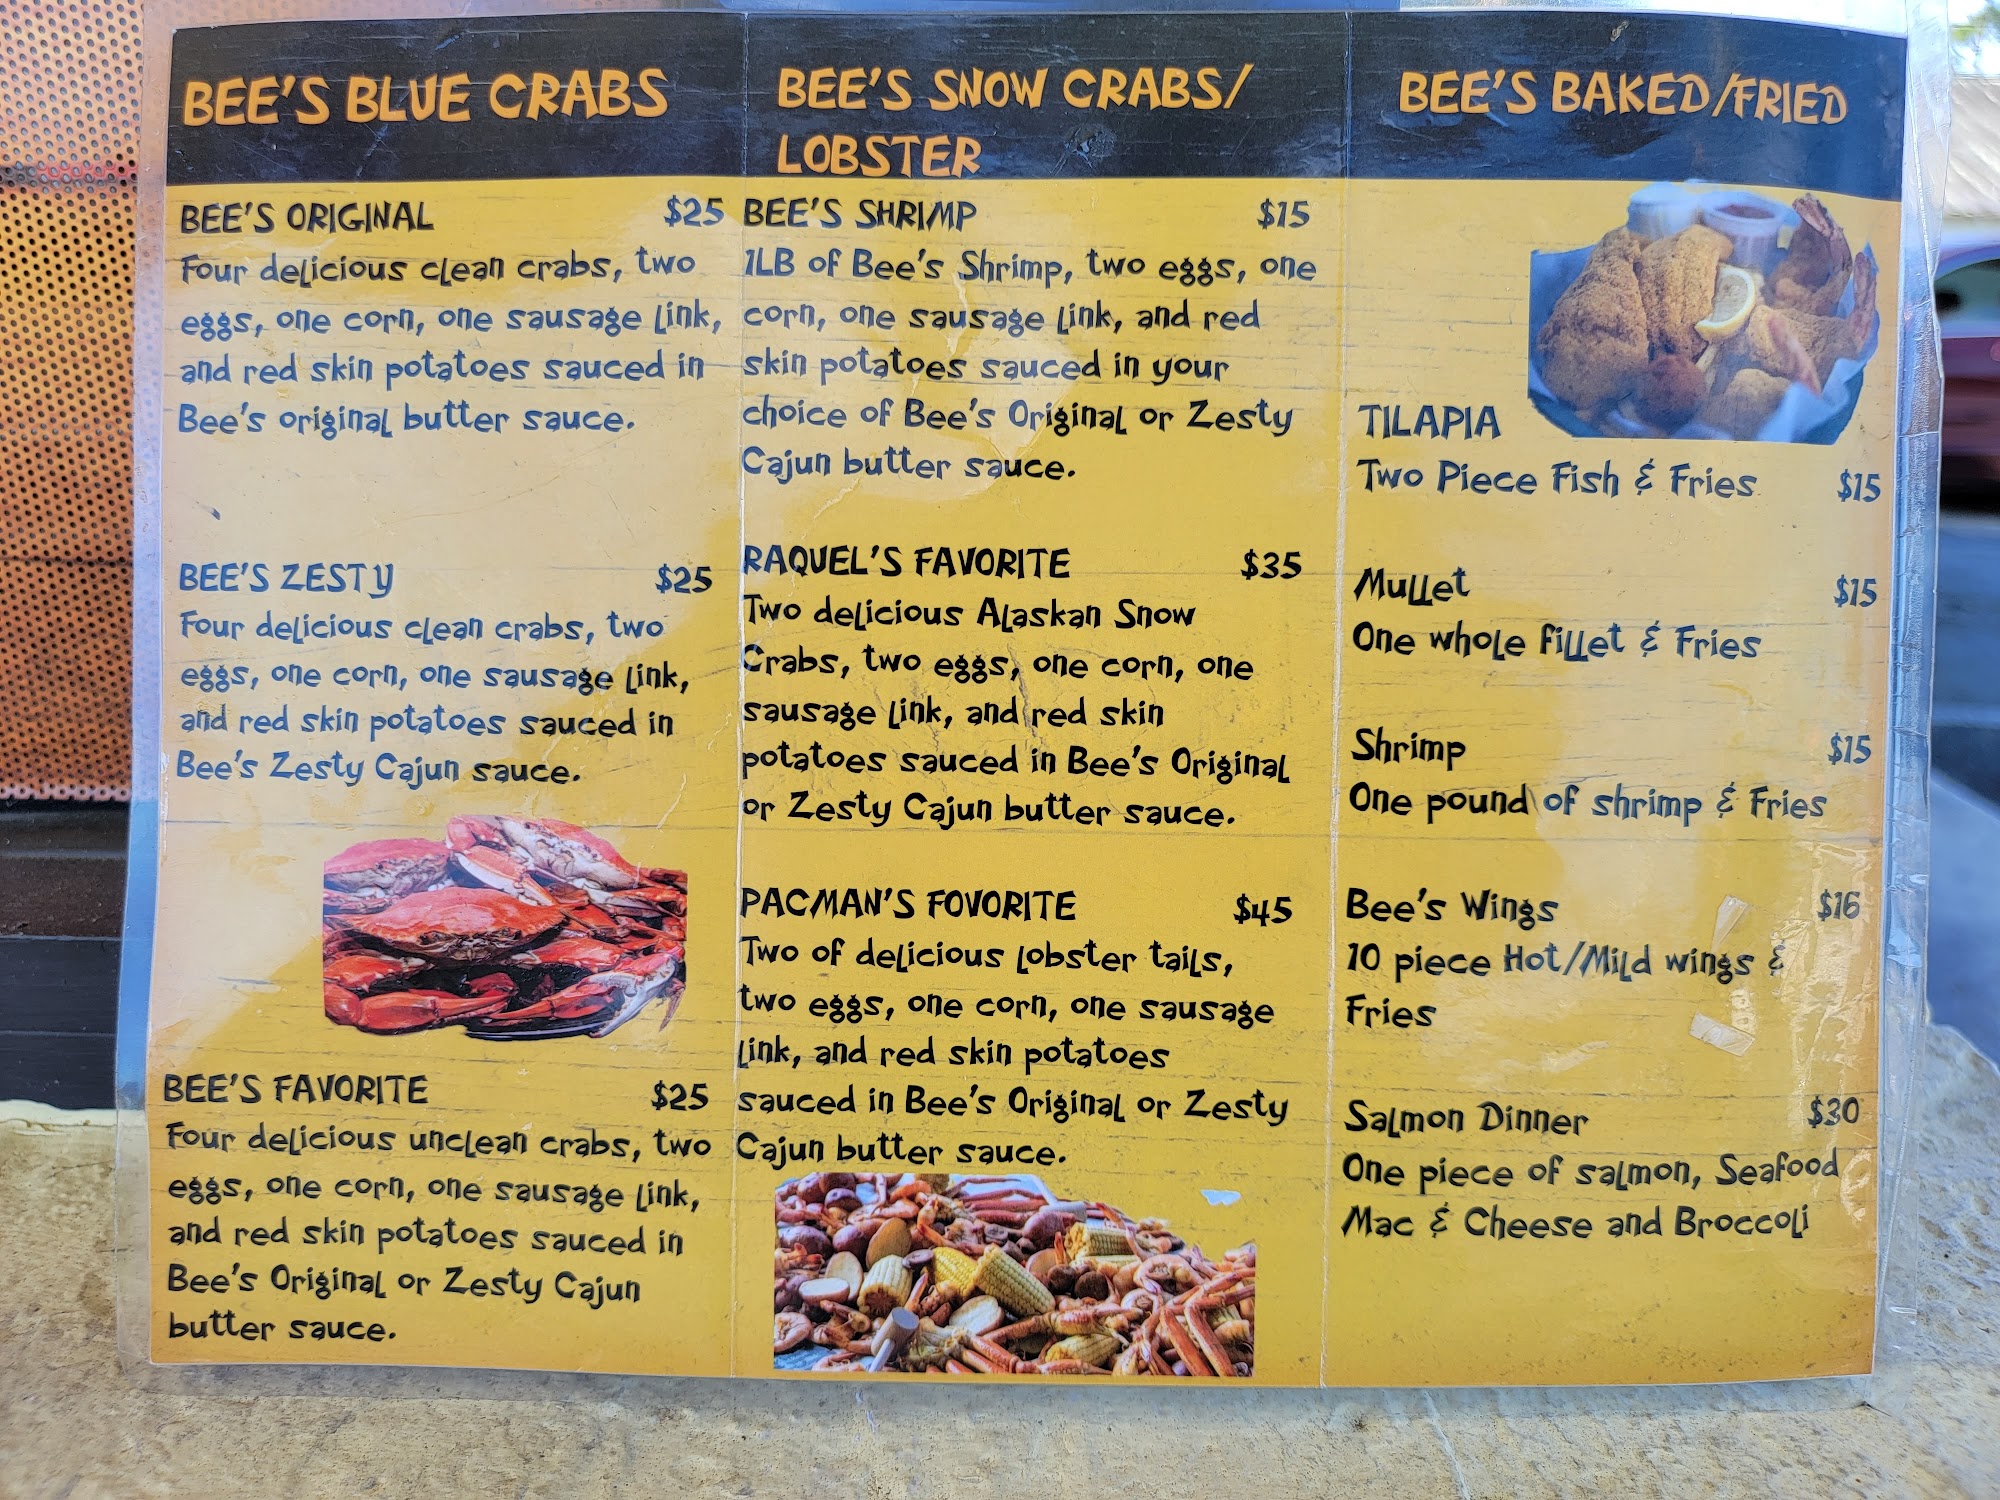 BEE'S BLUE CRABS
BEE'S ORIGINAL $25
Four delicious clean crabs, two
eggs, one corn, one sausage link,
and red skin potatoes sauced in
Bee's original butter sauce.
BEE'S ZESTY $25
Four delicious clean crabs, two
eggs, one corn, one sausage link,
and red skin potatoes sauced in
Bee's Zesty Cajun sauce.
BEE'S FAVORITE $25
Four delicious unclean crabs, two
eggs, one corn, one sausage link,
and red skin potatoes sauced in
Bee's Original or Zesty Cajun
butter sauce.
BEE'S SNOW CRABS/
LOBSTER
BEE'S SHRIMP $15
1LB of Bee's Shrimp, two eggs, one
corn, one sausage link, and red
skin potatoes sauced in your
choice of Bee's Original or Zesty
Cajun butter sauce.
RAQUEL'S FAVORITE $35
Two delicious Alaskan Snow
Crabs, two eggs, one corn, one
sausage link, and red skin
potatoes sauced in Bee's Original
or Zesty Cajun butter sauce.
PACMAN'S FOVORITE $45
Two of delicious lobster tails,
two eggs, one corn, one sausage
link, and red skin potatoes
sauced in Bee's Original or Zesty
Cajun butter sauce.
BEE'S BAKED/FRIED
TILAPIA
Two Piece Fish & Fries $15
Mullet $15
One whole fillet & Fries
Shrimp $15
One pound of shrimp & Fries
Bee's Wings $16
10 piece Hot/Mild wings &
Fries
Salmon Dinner $30
One piece of salmon, Seafood
Mac & Cheese and Broccoli